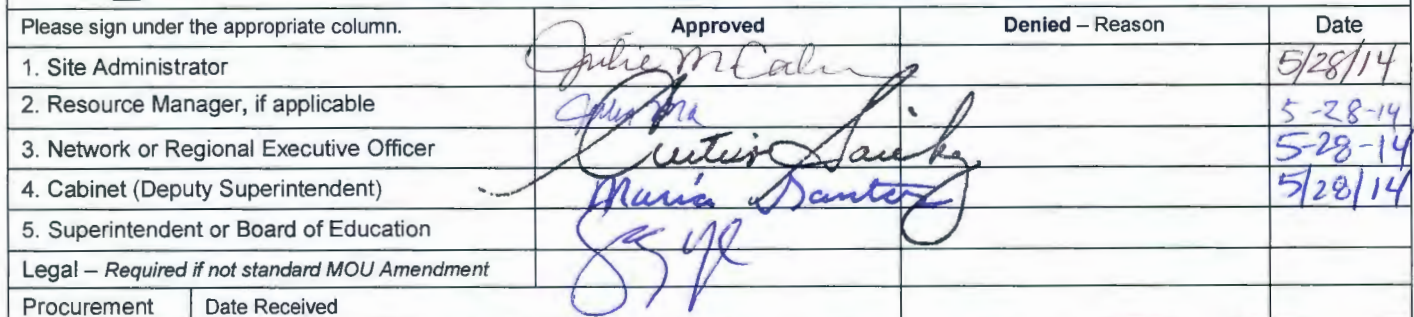 Please sign under the appropriate column. Approved Denied – Reason Date
1. Site Administrator Julie McCalm 5/28/14
2. Resource Manager, if applicable 5-28-14
3. Network or Regional Executive Officer 5-28-14
4. Cabinet (Deputy Superintendent) Maria Santos 5/28/14
5. Superintendent or Board of Education
Legal – Required if not standard MOU Amendment
Procurement Date Received